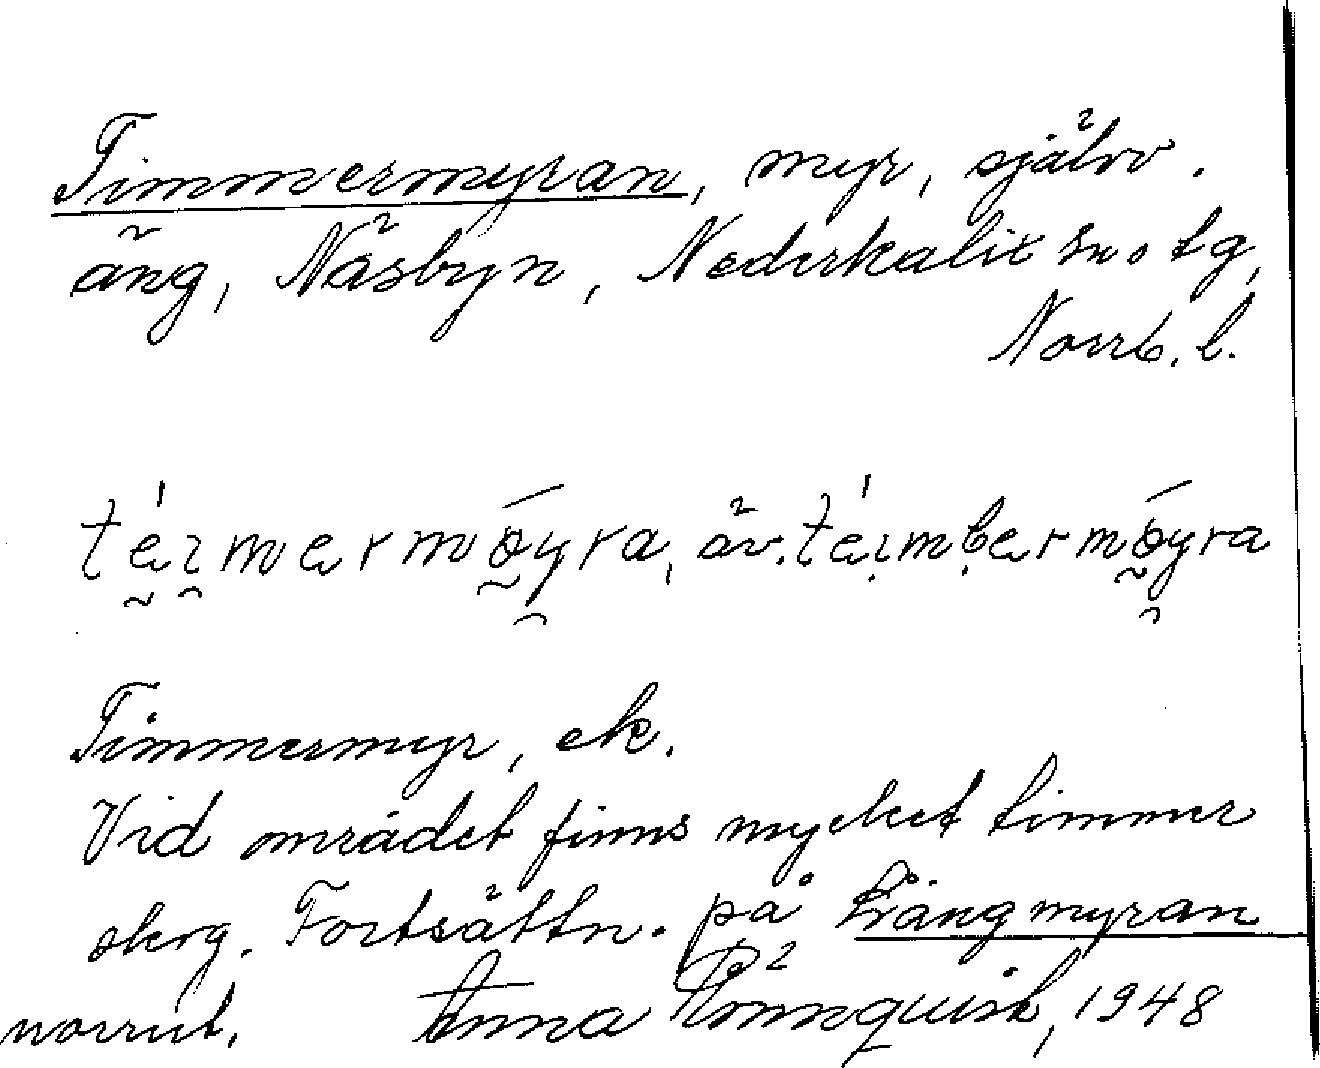 Timmermyran, myr, självv.
äng, Näsbyn, Nederkalix sn o tg,
Norrb. l.
téi̯mermó̰y̯ra, äv. téi̯mbermó̰y̯ra
Timmermyr, ek.
Vid området finns mycket timmer
skog. Fortsättn. på Långmyran
norrut. Anna Rönnquist, 1948